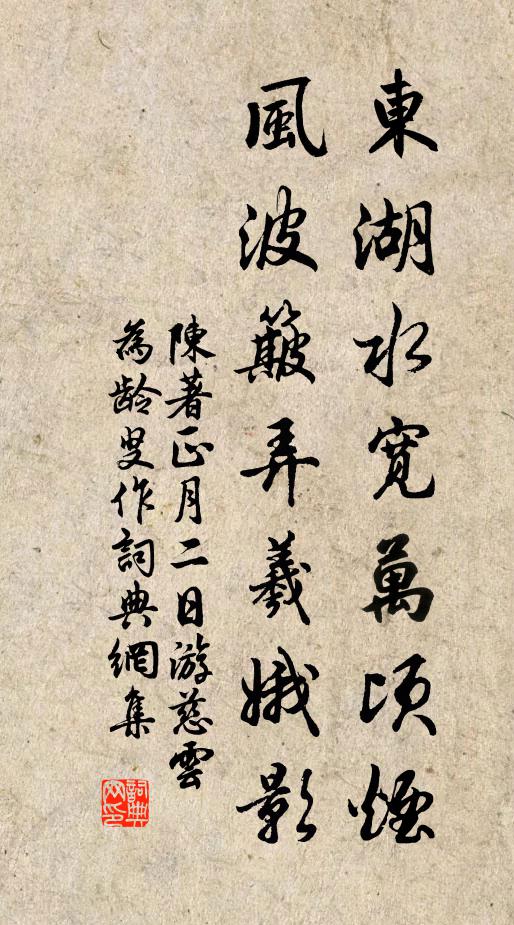 東湖水寬萬頃煙
風波簸弄羲娥影
陳著正月二日游慈雲
為齡叟作詞典網集
詞典網印